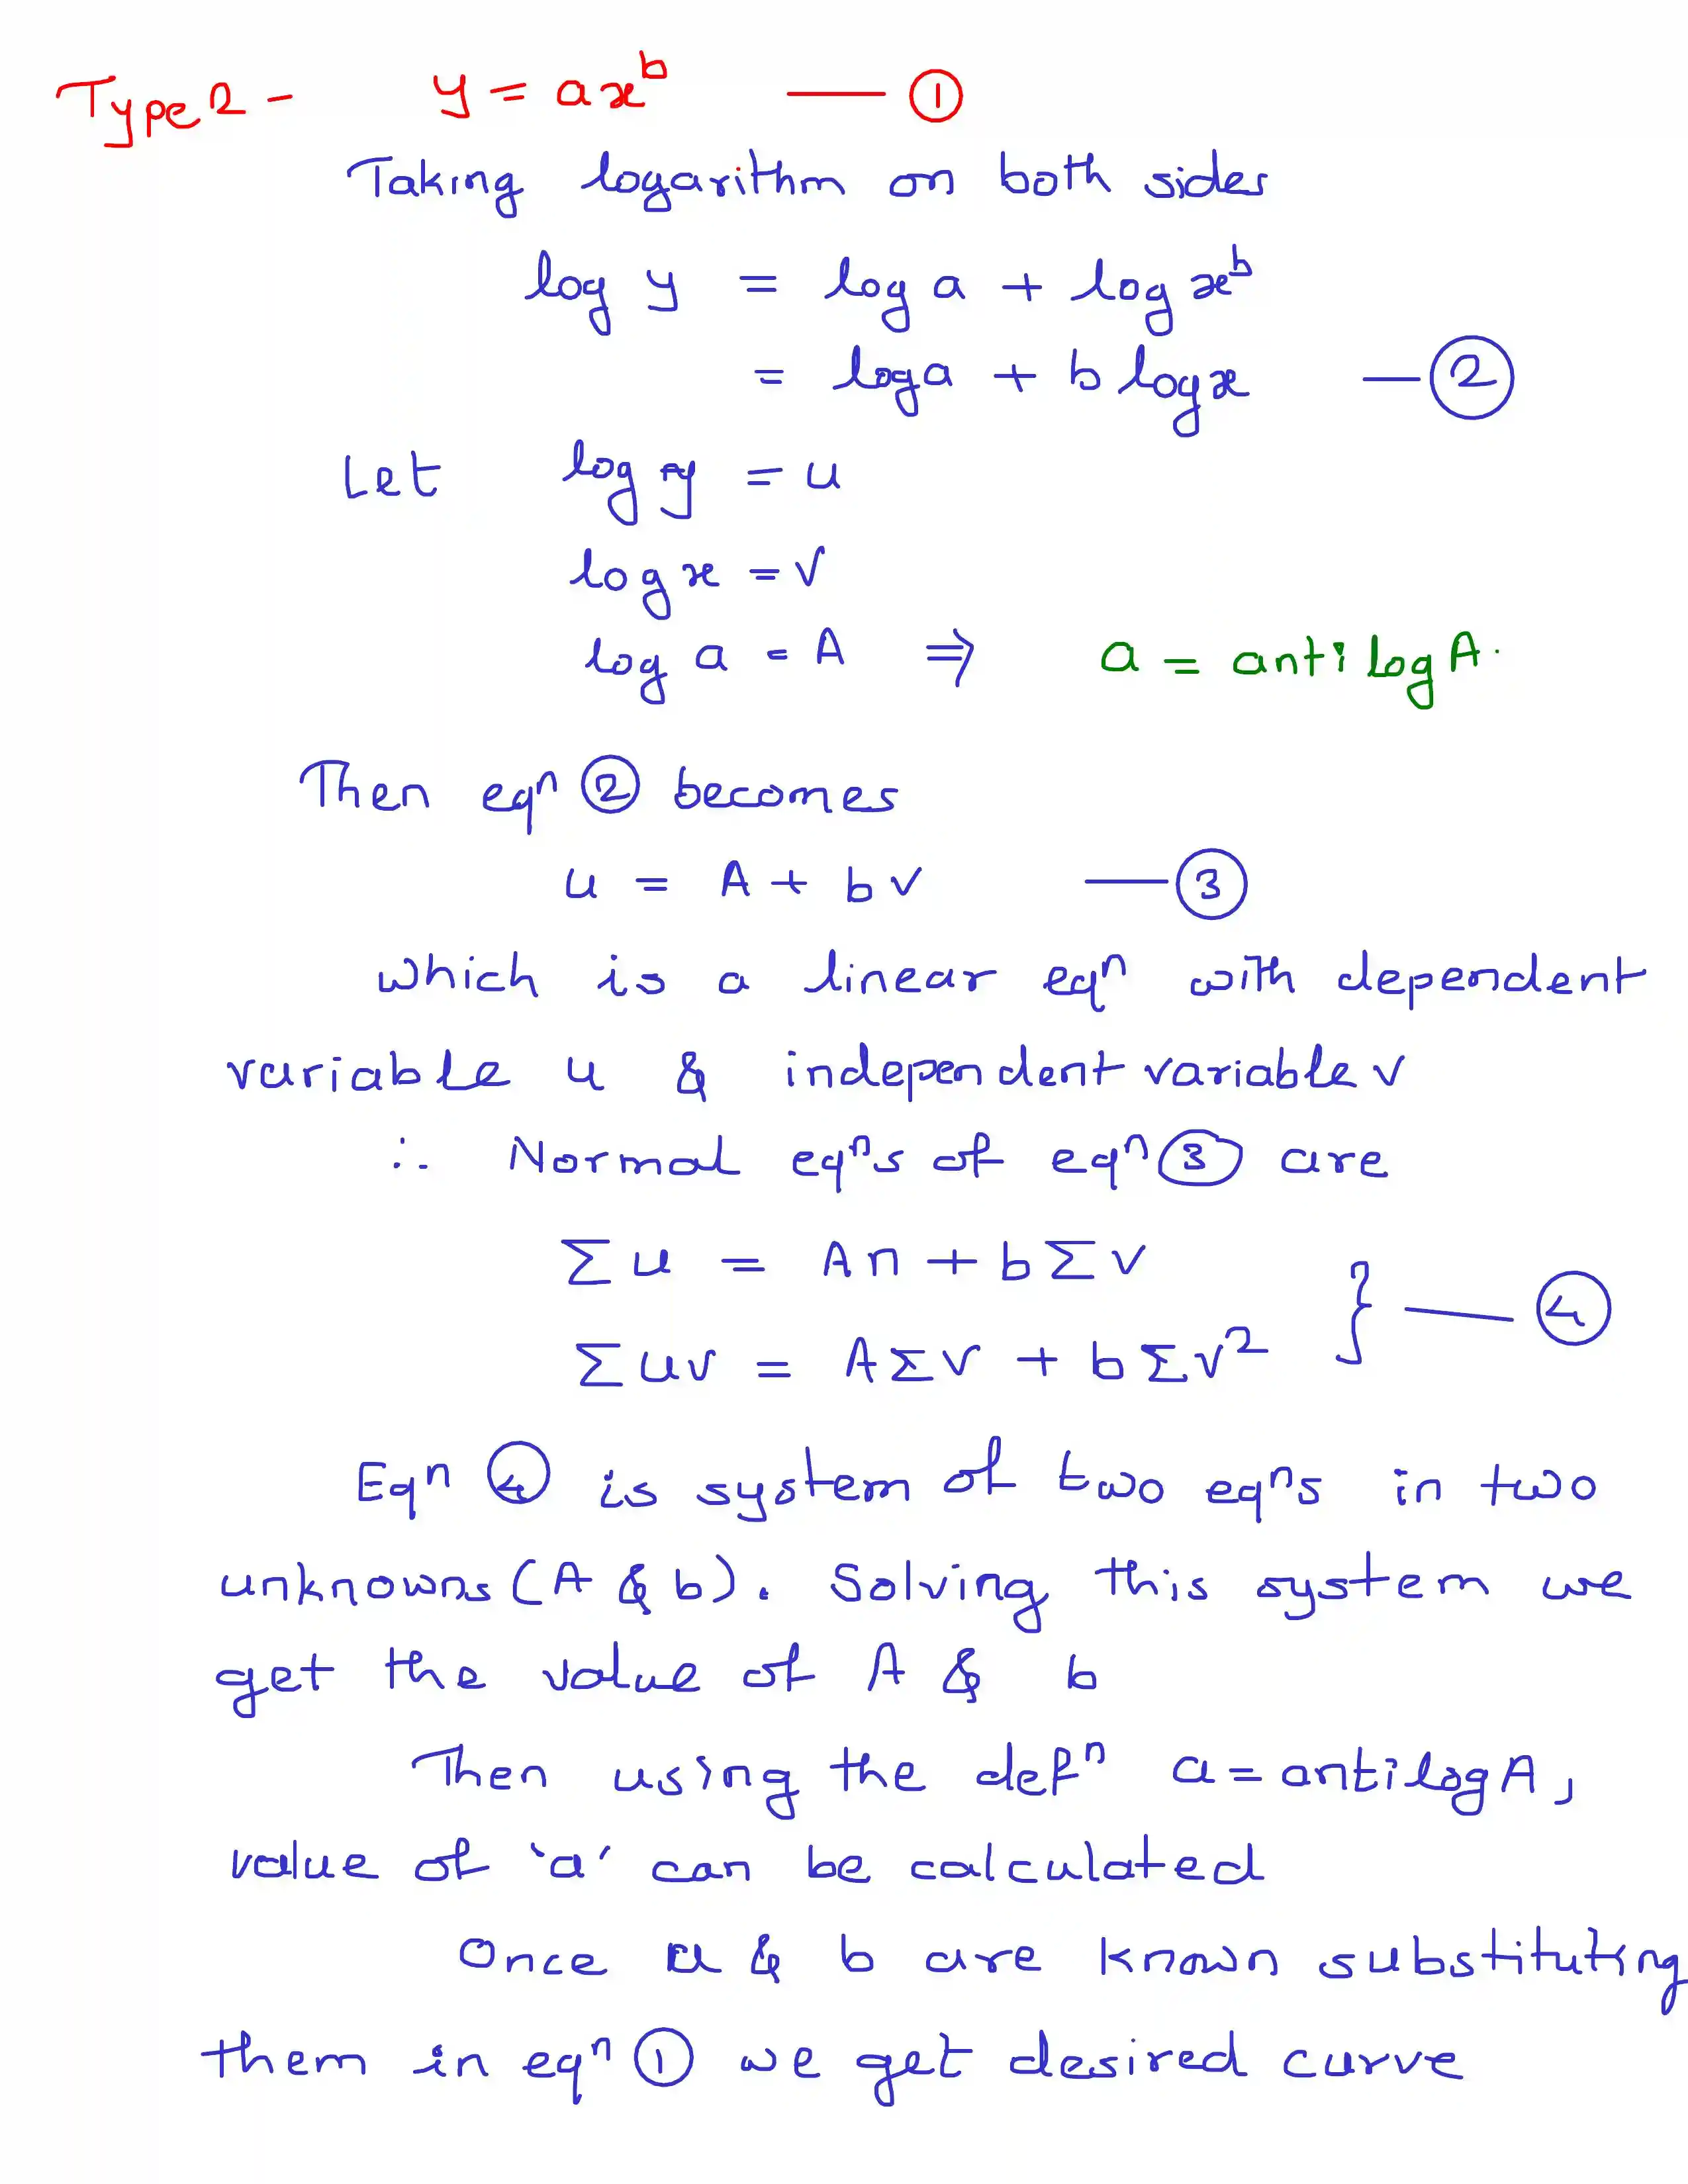 Type 2 - y = ax^b —— ①
Taking logarithm on both sides
log y = log a + log x^b
= log a + b log x — ②
Let log y = u
log x = v
log a = A ⇒ a = antilog A.
Then eqⁿ ② becomes
u = A + bv —— ③
which is a linear eqⁿ with dependent
variable u & independent variable v
∴ Normal eqⁿs of eqⁿ ③ are
Σu = An + bΣv
Σuv = AΣv + bΣv² } —— ④
Eqⁿ ④ is system of two eqⁿs in two
unknowns (A & b). Solving this system we
get the value of A & b
Then using the defⁿ a = antilog A,
value of 'a' can be calculated
Once a & b are known substituting
them in eqⁿ ① we get desired curve